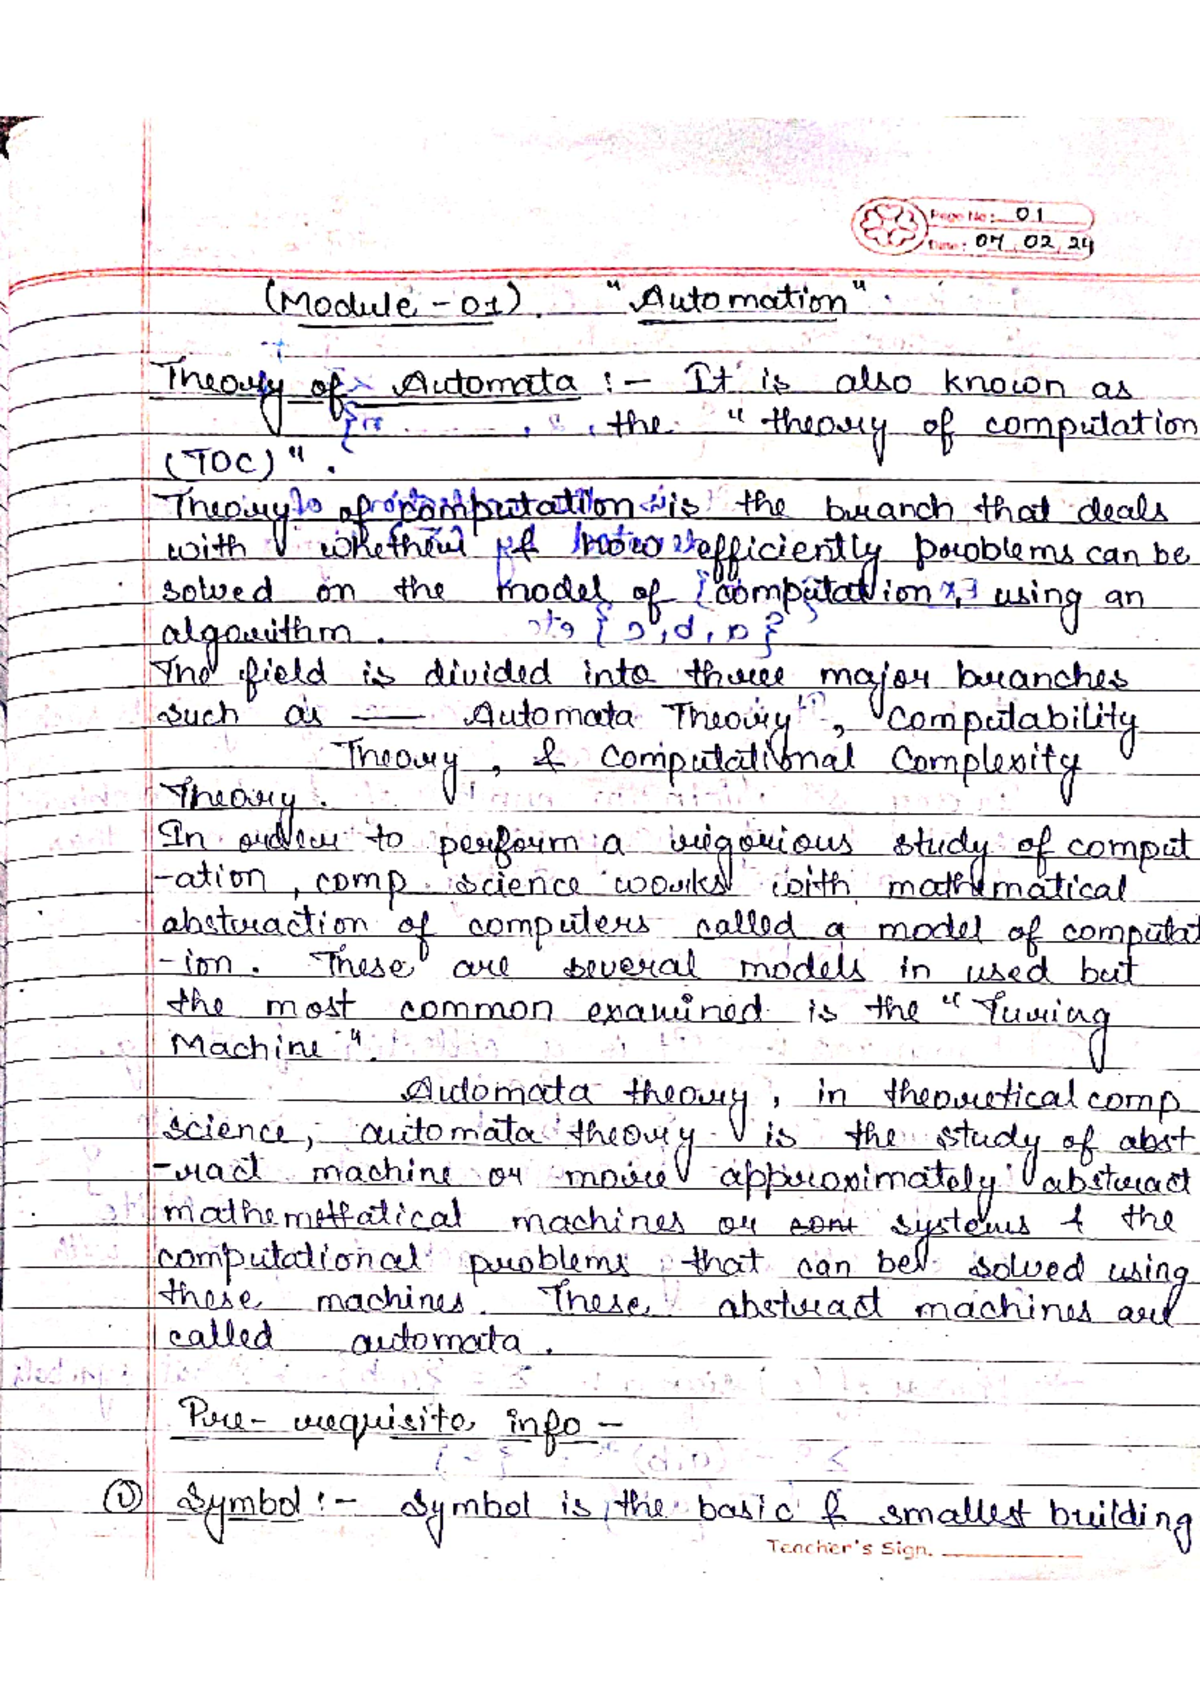 Page No: 01
Date: 07.02.24
(Module - 01). "Automation".
Theory of Automata :- It is also known as
the "theory of computation
(TOC)".
Theory of computation is the branch that deals
with whether & how efficiently problems can be
solved on the model of computation, using an
algorithm.
The field is divided into three major branches
such as — Automata Theory, Computability
Theory, & Computational Complexity
Theory.
In order to perform a rigorious study of comput
-ation, comp. science works with mathematical
abstraction of computers called a model of computat
-ion. These are several models in used but
the most common examined is the "Turing
Machine".
Automata theory, in theoretical comp
science, automata theory is the study of abst
-ract machine or more approximately abstract
mathemattatical machines or systems & the
computational problems that can be solved using
these machines. These abstract machines are
called automata.
Pre-requisite info -
① Symbol :- Symbol is the basic & smallest building
Teacher's Sign.